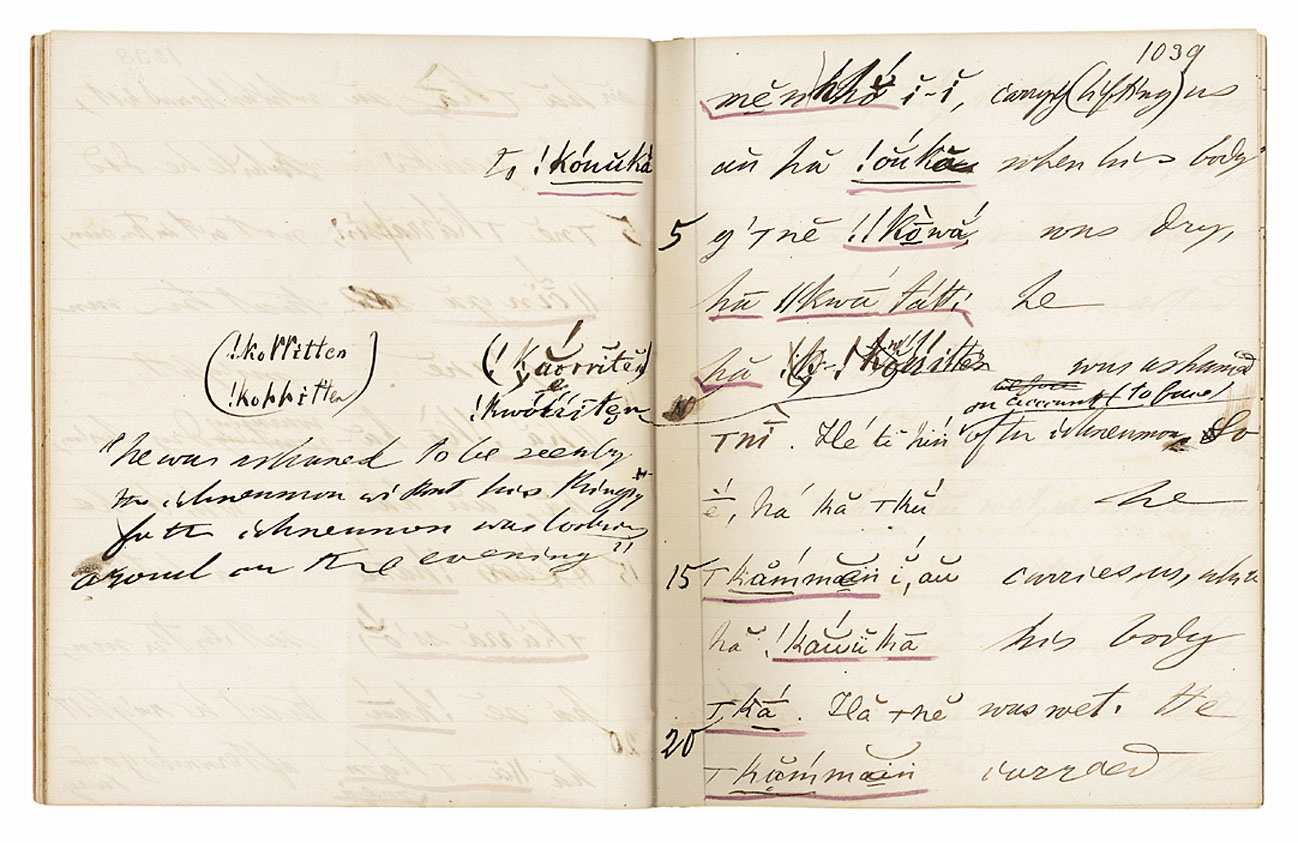 to !kónŭkā
(!koϟϟitten
!kohhitten)
(!kắorrĭtĕn)
!kwŏ́rrĭten
"he was ashamed to be seen by
the ichneumon without his things,
for the ichneumon was looking
around in the evening"
1039
mĕnkhó ĭ-ĭ, carry (lifting) us
aŭ hă !óŭkā when his body
5 g'ꞇnĕ !!kòwá, was dry,
hā ǁkwā tátti he
hă !kŏŭitten was ashamed
on account (to face)
10 ꞇnĭ̀. Hé tĭ hiń of the ichneumon. So
ĕ́, hắ kă ꞇkŭ́ he
15 ꞇkắmmain ĭ, aŭ carries us, when
hă !kắŭŭkā his body
ꞇká. Hă ꞇnĕ was wet. He
20 ꞇkạ́mmain carried